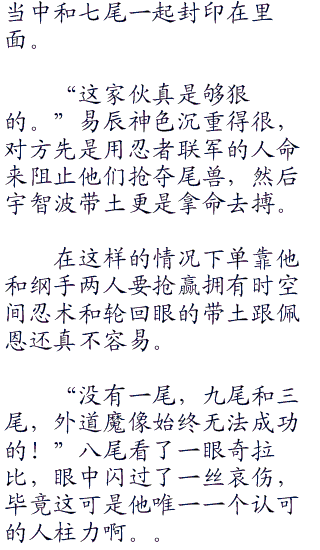 当中和七尾一起封印在里
面。
“这家伙真是够狠
的。”易辰神色沉重得很，
对方先是用忍者联军的人命
来阻止他们抢夺尾兽，然后
宇智波带土更是拿命去搏。
在这样的情况下单靠他
和纲手两人要抢赢拥有时空
间忍术和轮回眼的带土跟佩
恩还真不容易。
“没有一尾，九尾和三
尾，外道魔像始终无法成功
的！”八尾看了一眼奇拉
比，眼中闪过了一丝哀伤，
毕竟这可是他唯一一个认可
的人柱力啊。。